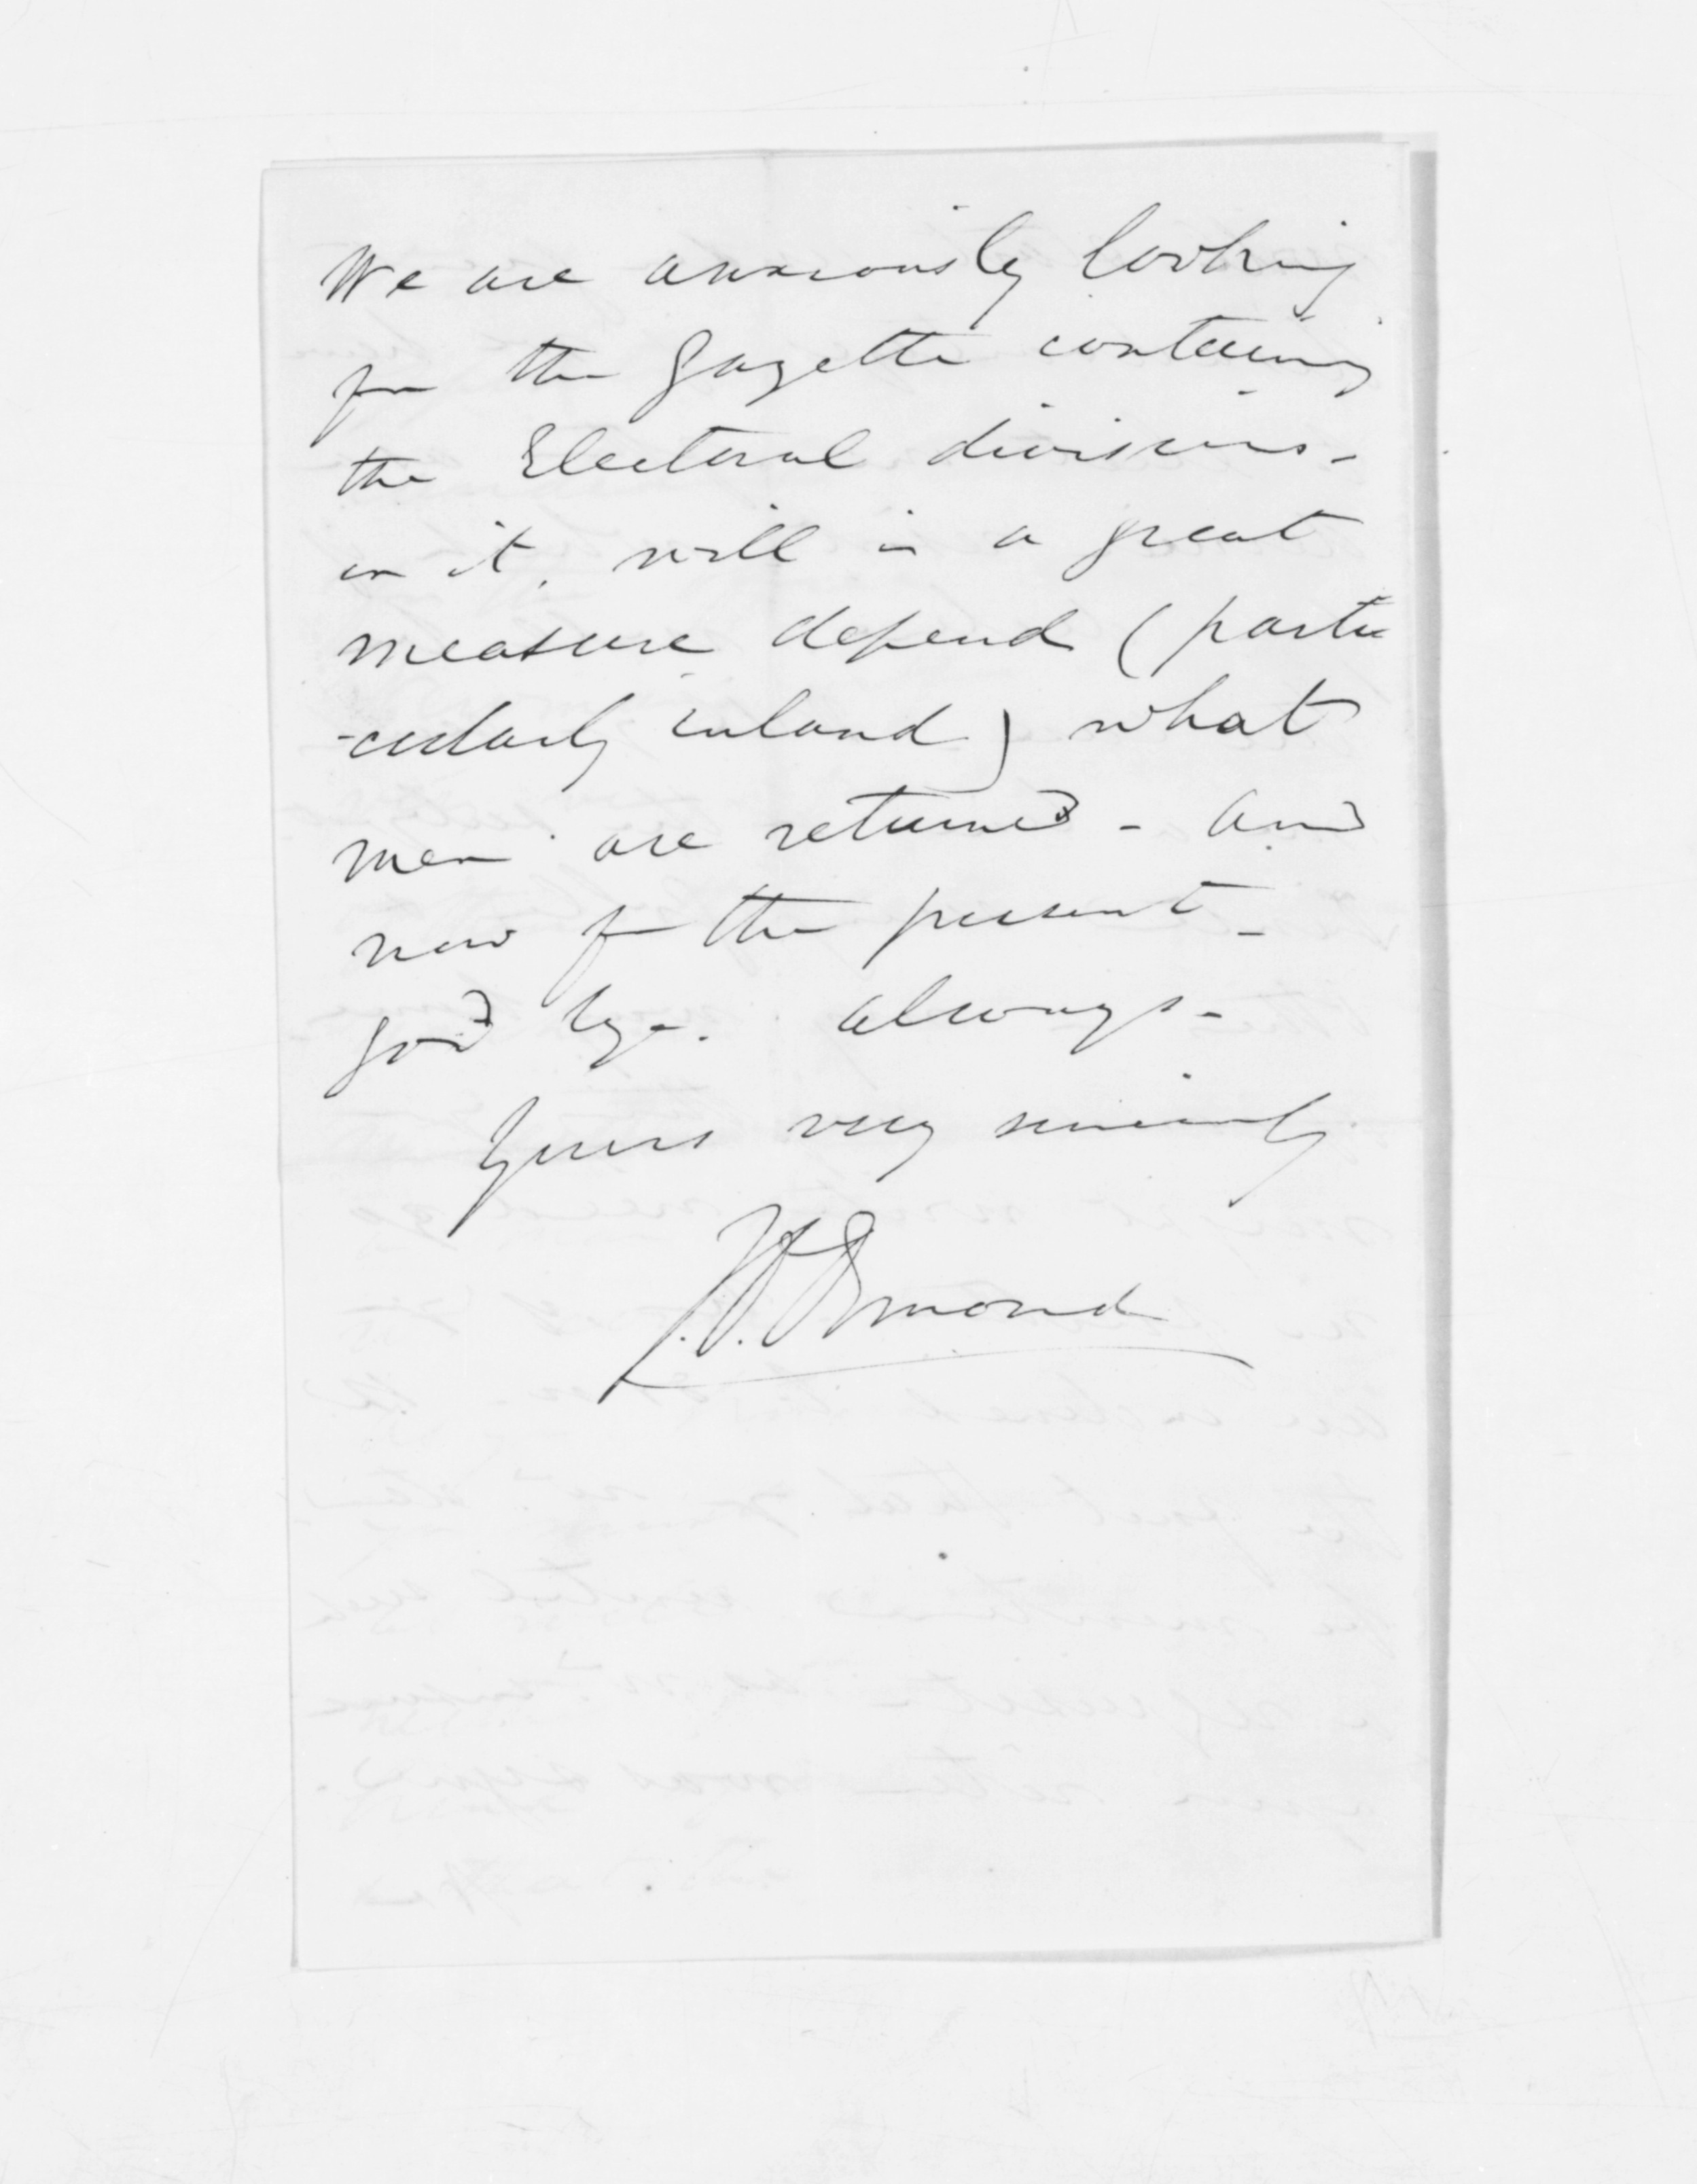 We are anxiously looking
for the Gazette containing
the Electoral divisions -
on it, will in a great
measure depend (parti
-cularly inland) what
men are returned - and
now for the present -
good bye. always -
Yours very sincerely
J.D. Ormond